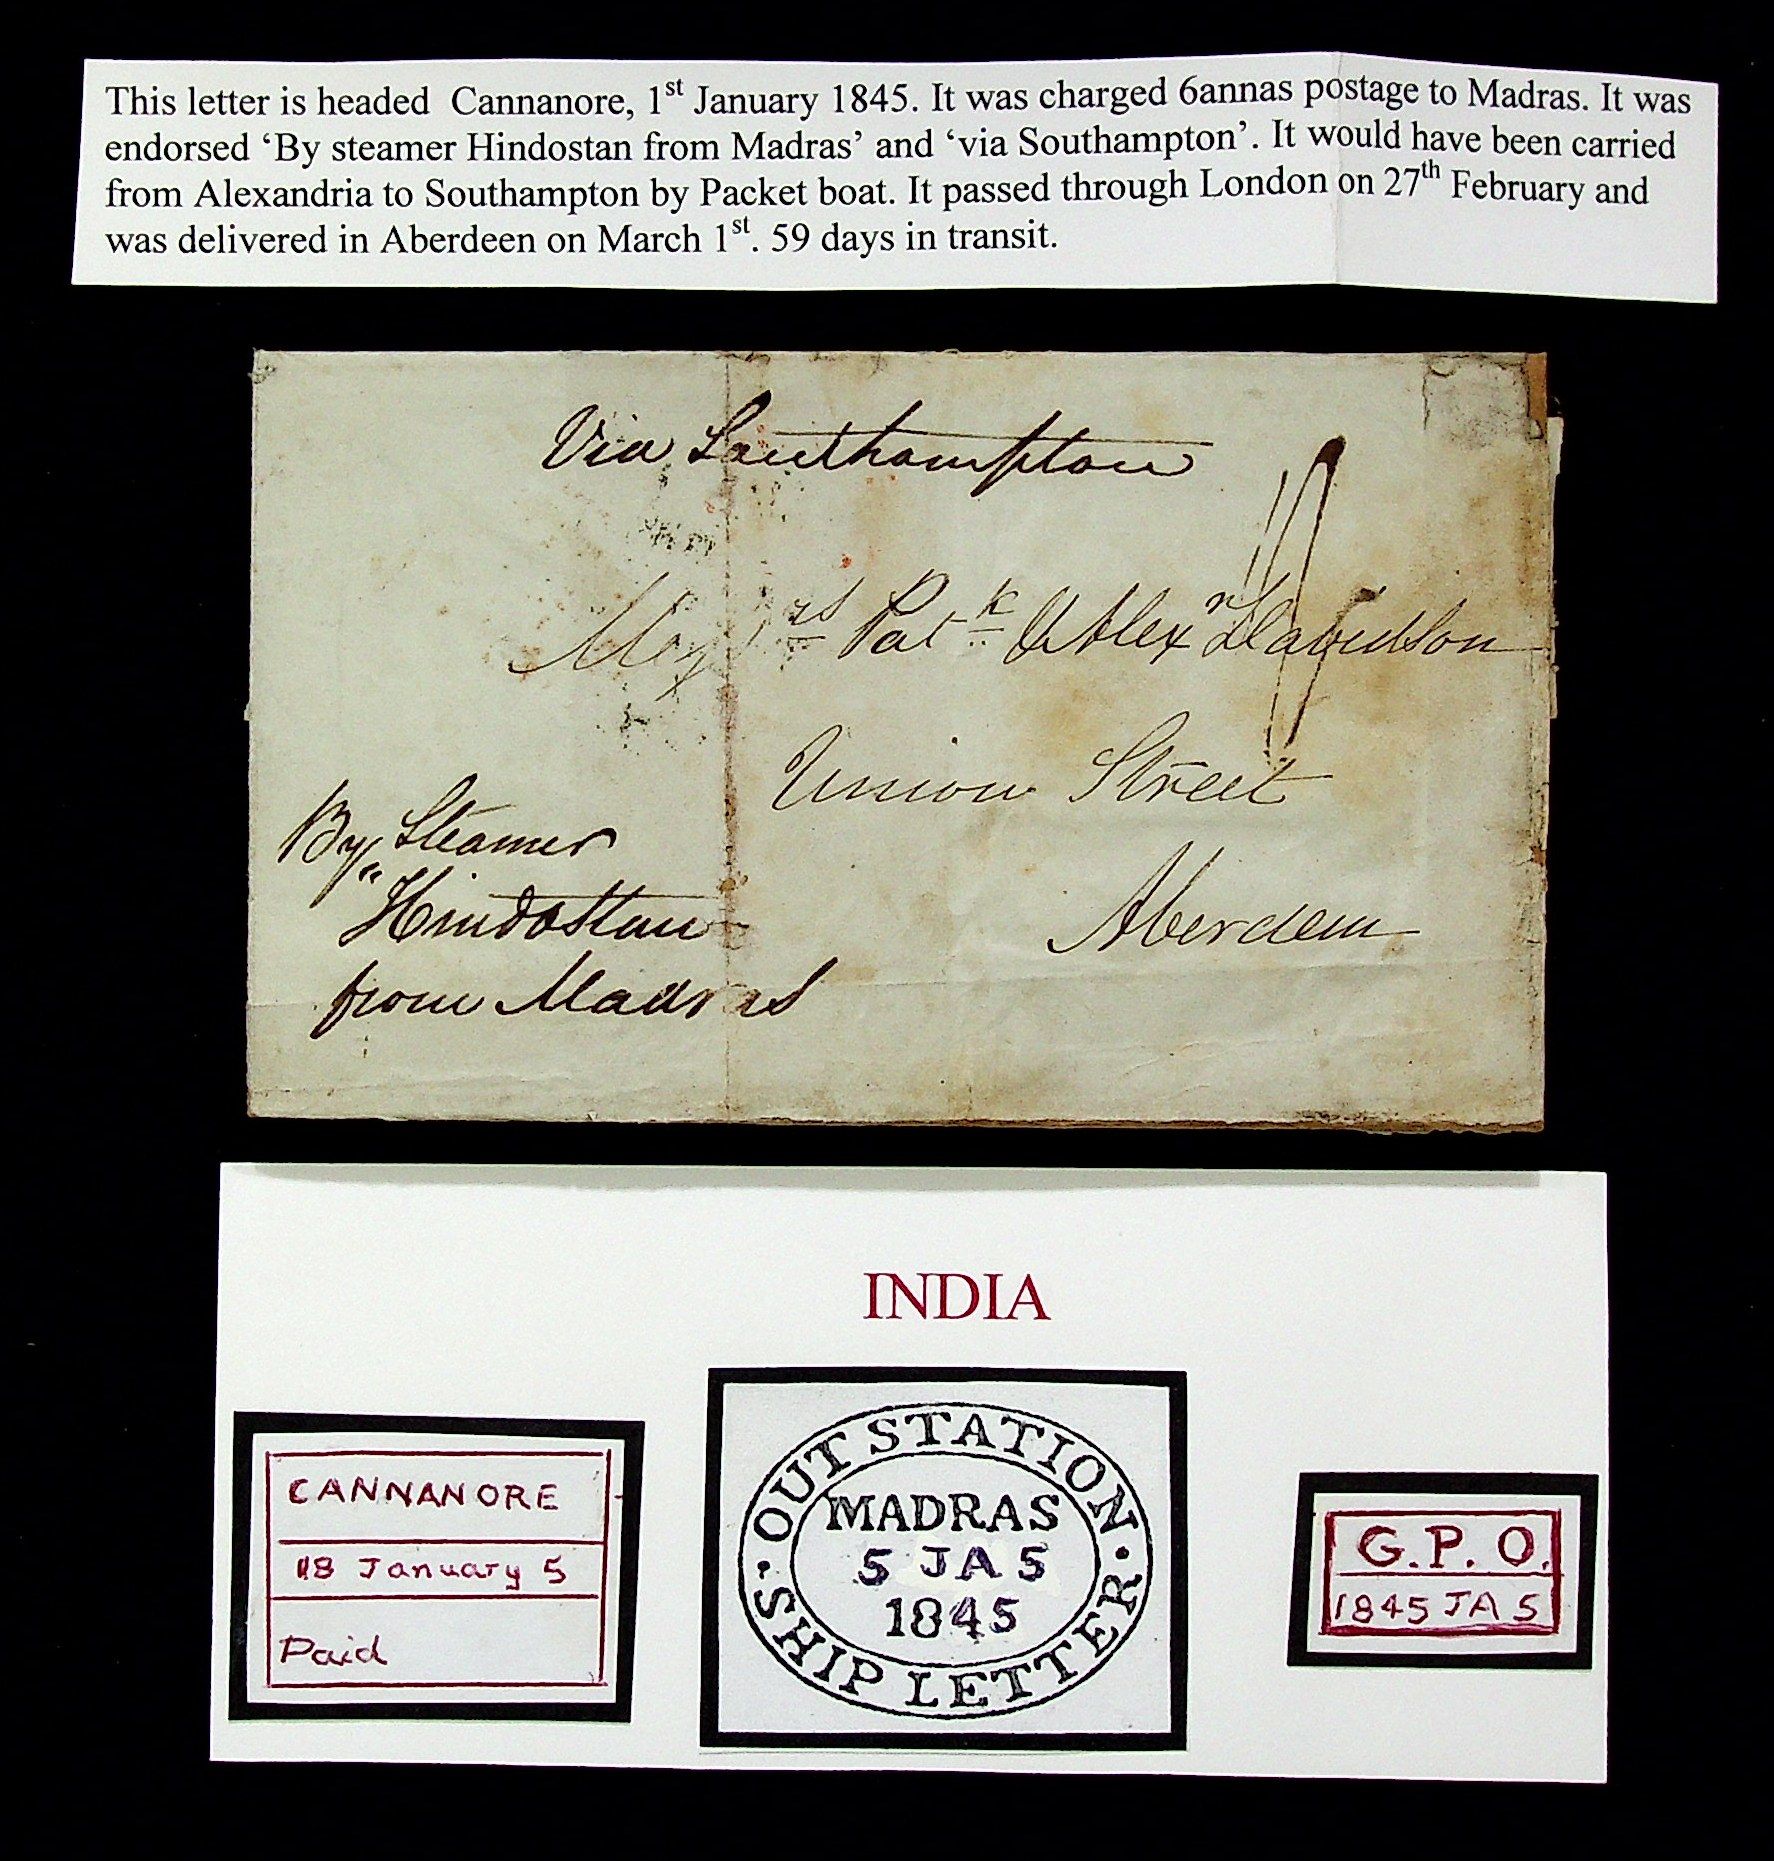 This letter is headed Cannanore, 1st January 1845. It was charged 6annas postage to Madras. It was
endorsed ‘By steamer Hindostan from Madras’ and ‘via Southampton’. It would have been carried
from Alexandria to Southampton by Packet boat. It passed through London on 27th February and
was delivered in Aberdeen on March 1st. 59 days in transit.
Via Southampton
Patk & Alexr Davidson
Union Street
Aberdeen
By Steamer
Hindostan
from Madras
INDIA
CANNANORE
18 January 5
Paid
OUT STATION
MADRAS
5 JA 5
1845
SHIP LETTER
G.P.O.
1845 JA 5